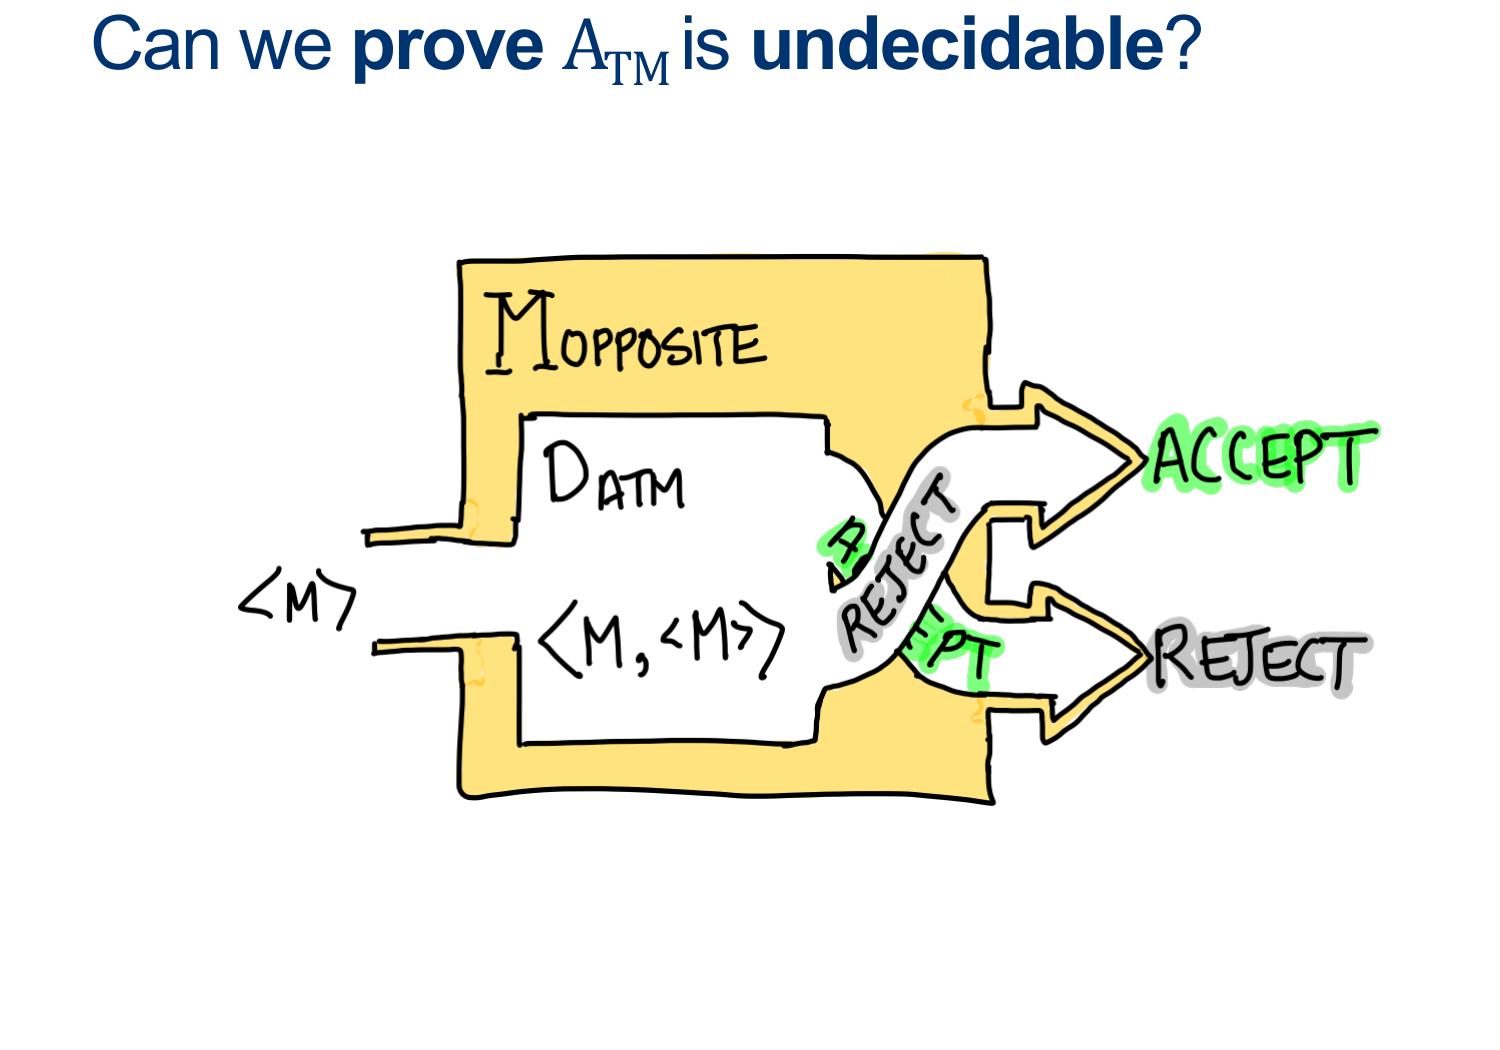 Can we prove A_TM is undecidable?
M OPPOSITE
D ATM
ACCEPT
REJECT
<M>
<M, <M>>
A
PT
REJECT